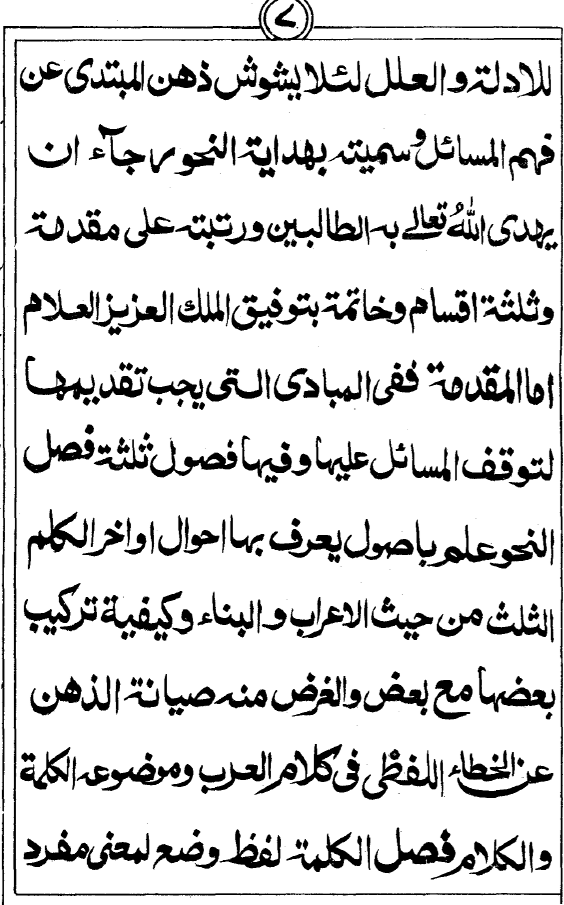 ٧
للادلة والعلل لئلا يشوش ذهن المبتدى عن
فهم المسائل وسميته بهداية النحو رجآء ان
يهدى اللهُ تعالى به الطالبين ورتبته على مقدمة
وثلثة اقسام وخاتمة بتوفيق الملك العزيز العلام
اما المقدمة ففى المبادى التى يجب تقديمها
لتوقف المسائل عليها وفيها فصول ثلثة فصل
النحو علم باصول يعرف بها احوال اواخر الكلم
الثلث من حيث الاعراب والبناء وكيفية تركيب
بعضها مع بعض والغرض منه صيانة الذهن
عن الخطاء اللفظْى فى كلام العرب وموضوعه الكلمة
والكلام فصل الكلمة لفظ وضع لمعنى مفرد